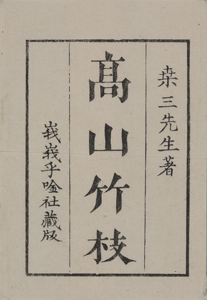 桒三先生著
髙山竹枝
峩峩乎唫社藏版